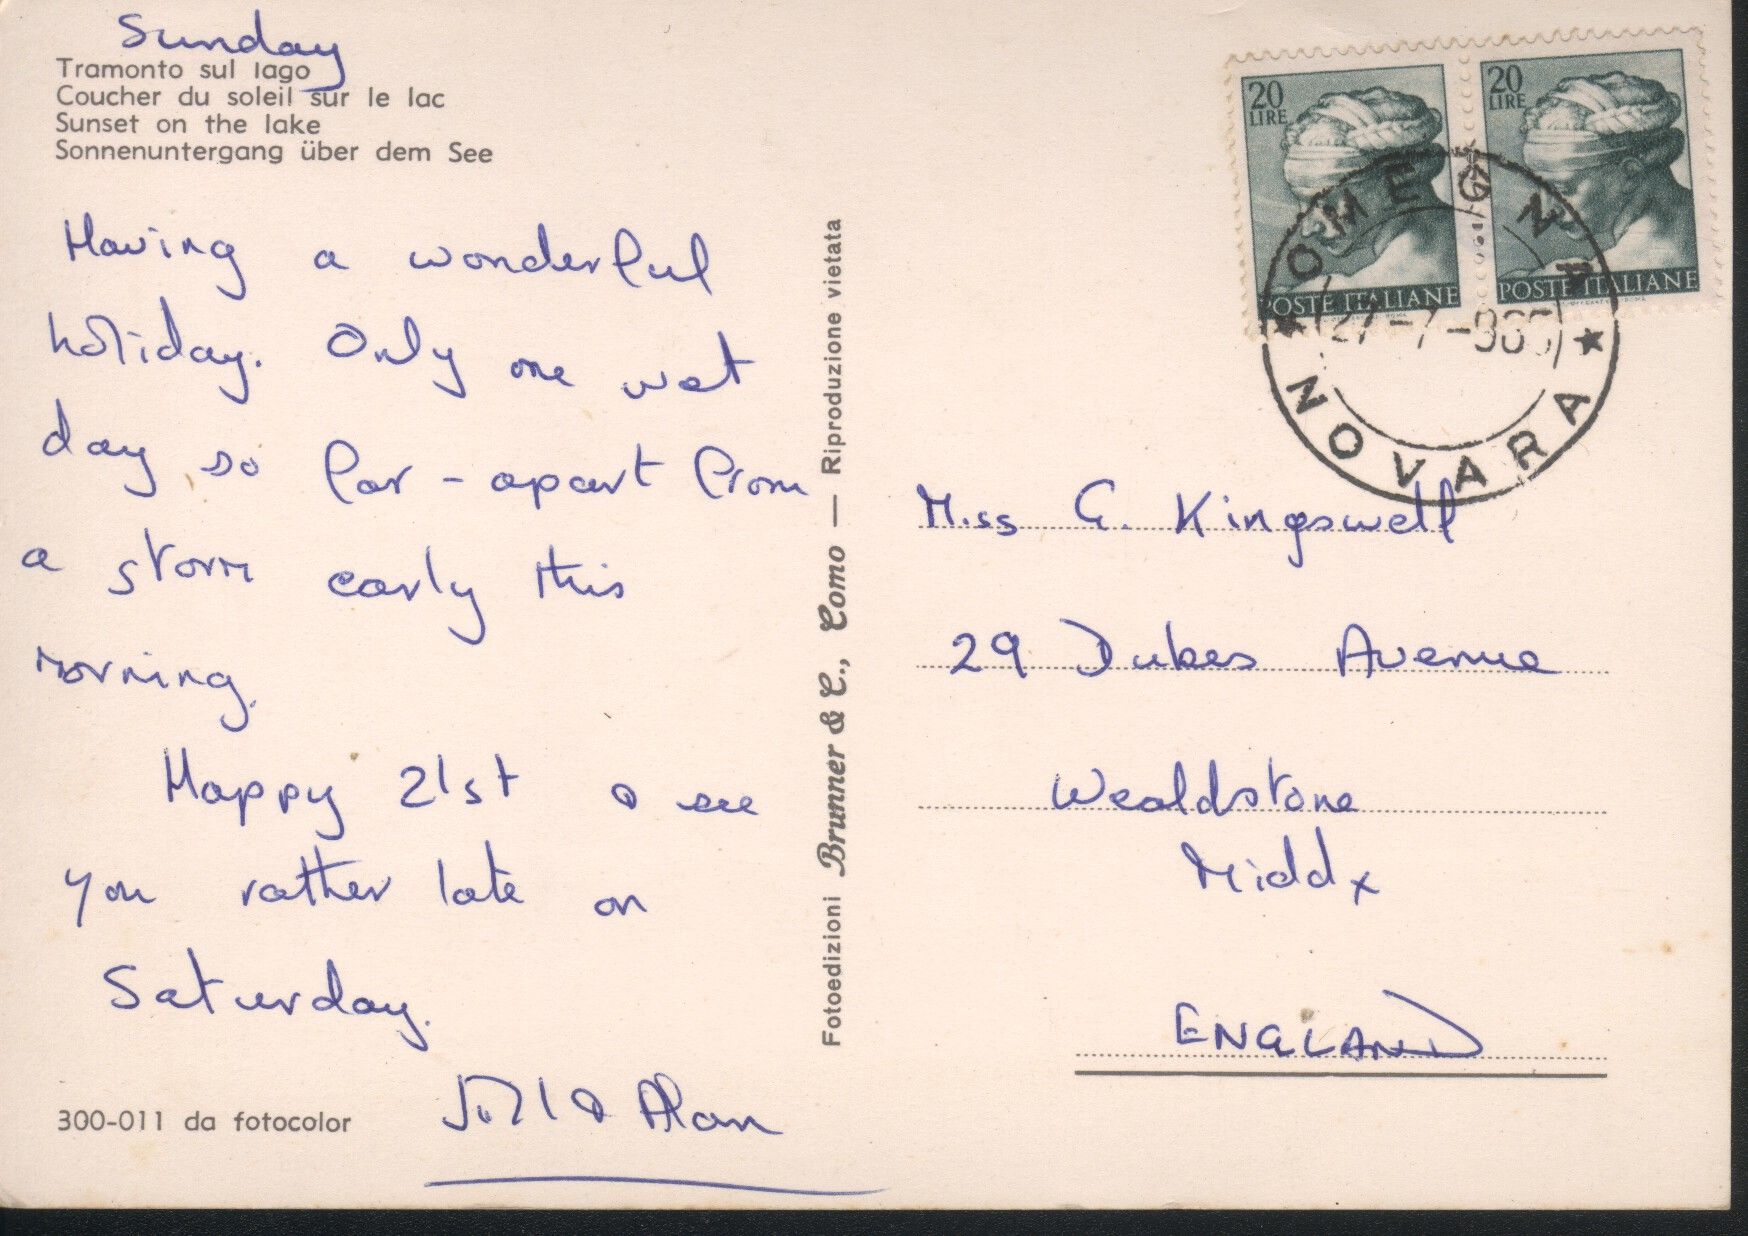 Sunday
Tramonto sul lago
Coucher du soleil sur le lac
Sunset on the lake
Sonnenuntergang über dem See
Having a wonderful
holiday. Only one wet
day so far - apart from
a storm early this
morning.
Happy 21st & see
you rather late on
Saturday.
Jill & Alan
300-011 da fotocolor
Fotoedizioni Brunner & C., Como — Riproduzione vietata
20 LIRE
POSTE ITALIANE
20 LIRE
POSTE ITALIANE
OMEGNA
NOVARA
Miss G. Kingswell
29 Dukes Avenue
Wealdstone
Middx
ENGLAND